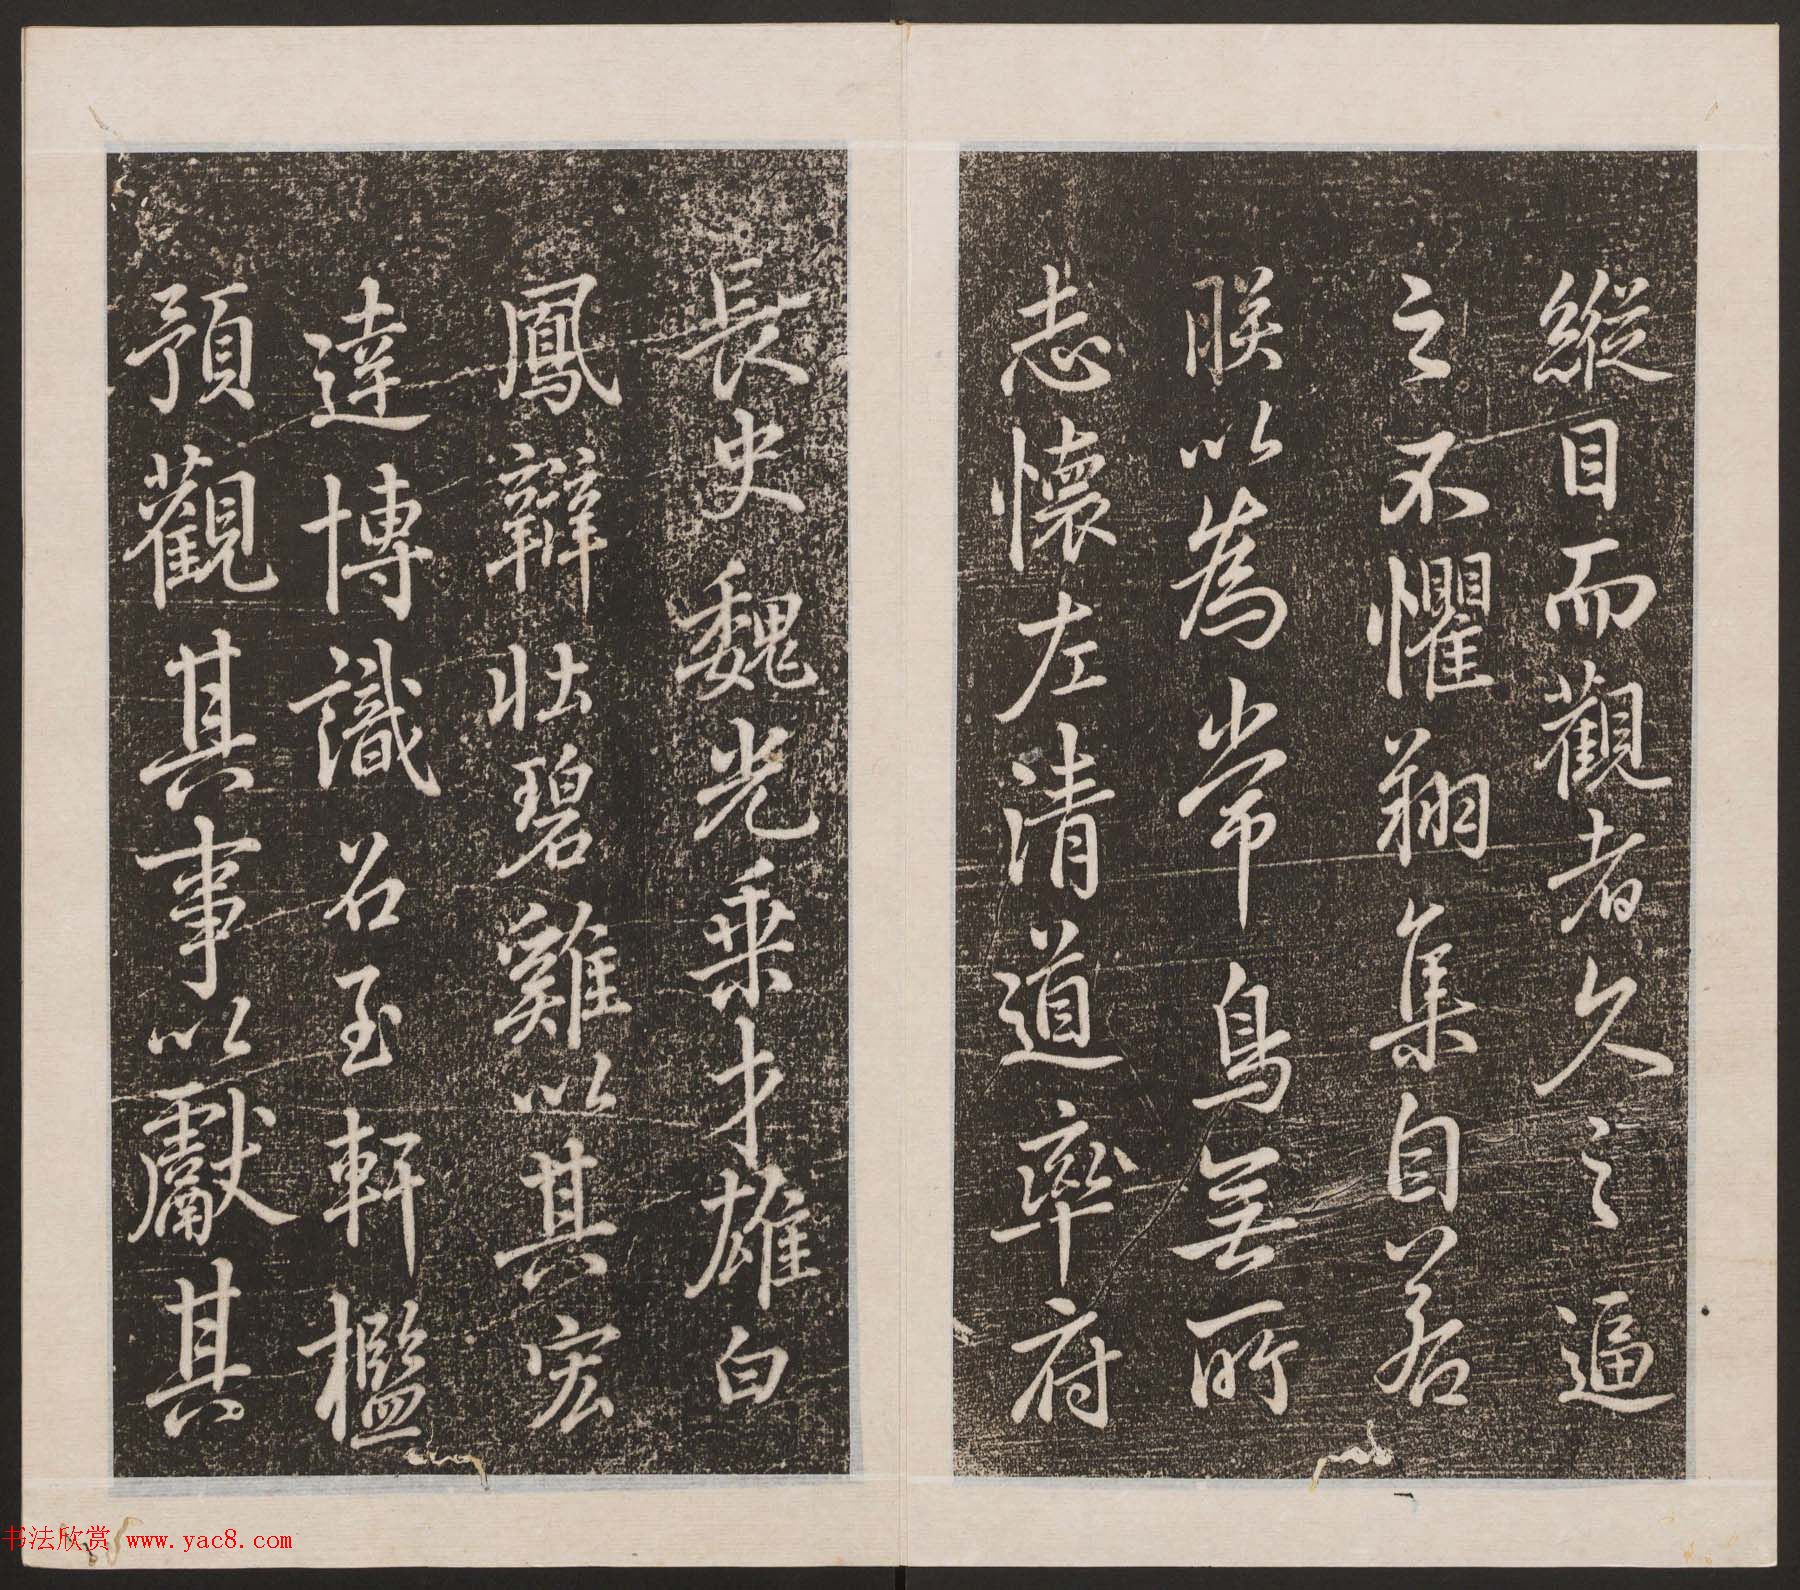 縱目而觀者久之逼
之不懼翔集自若
朕以為常鳥無所
志懷左清道率府
長史魏光乘才雄白
鳳辯壯碧雞以其宏
達博識召至軒檻
預觀其事以獻其
书法欣赏 www.yac8.com